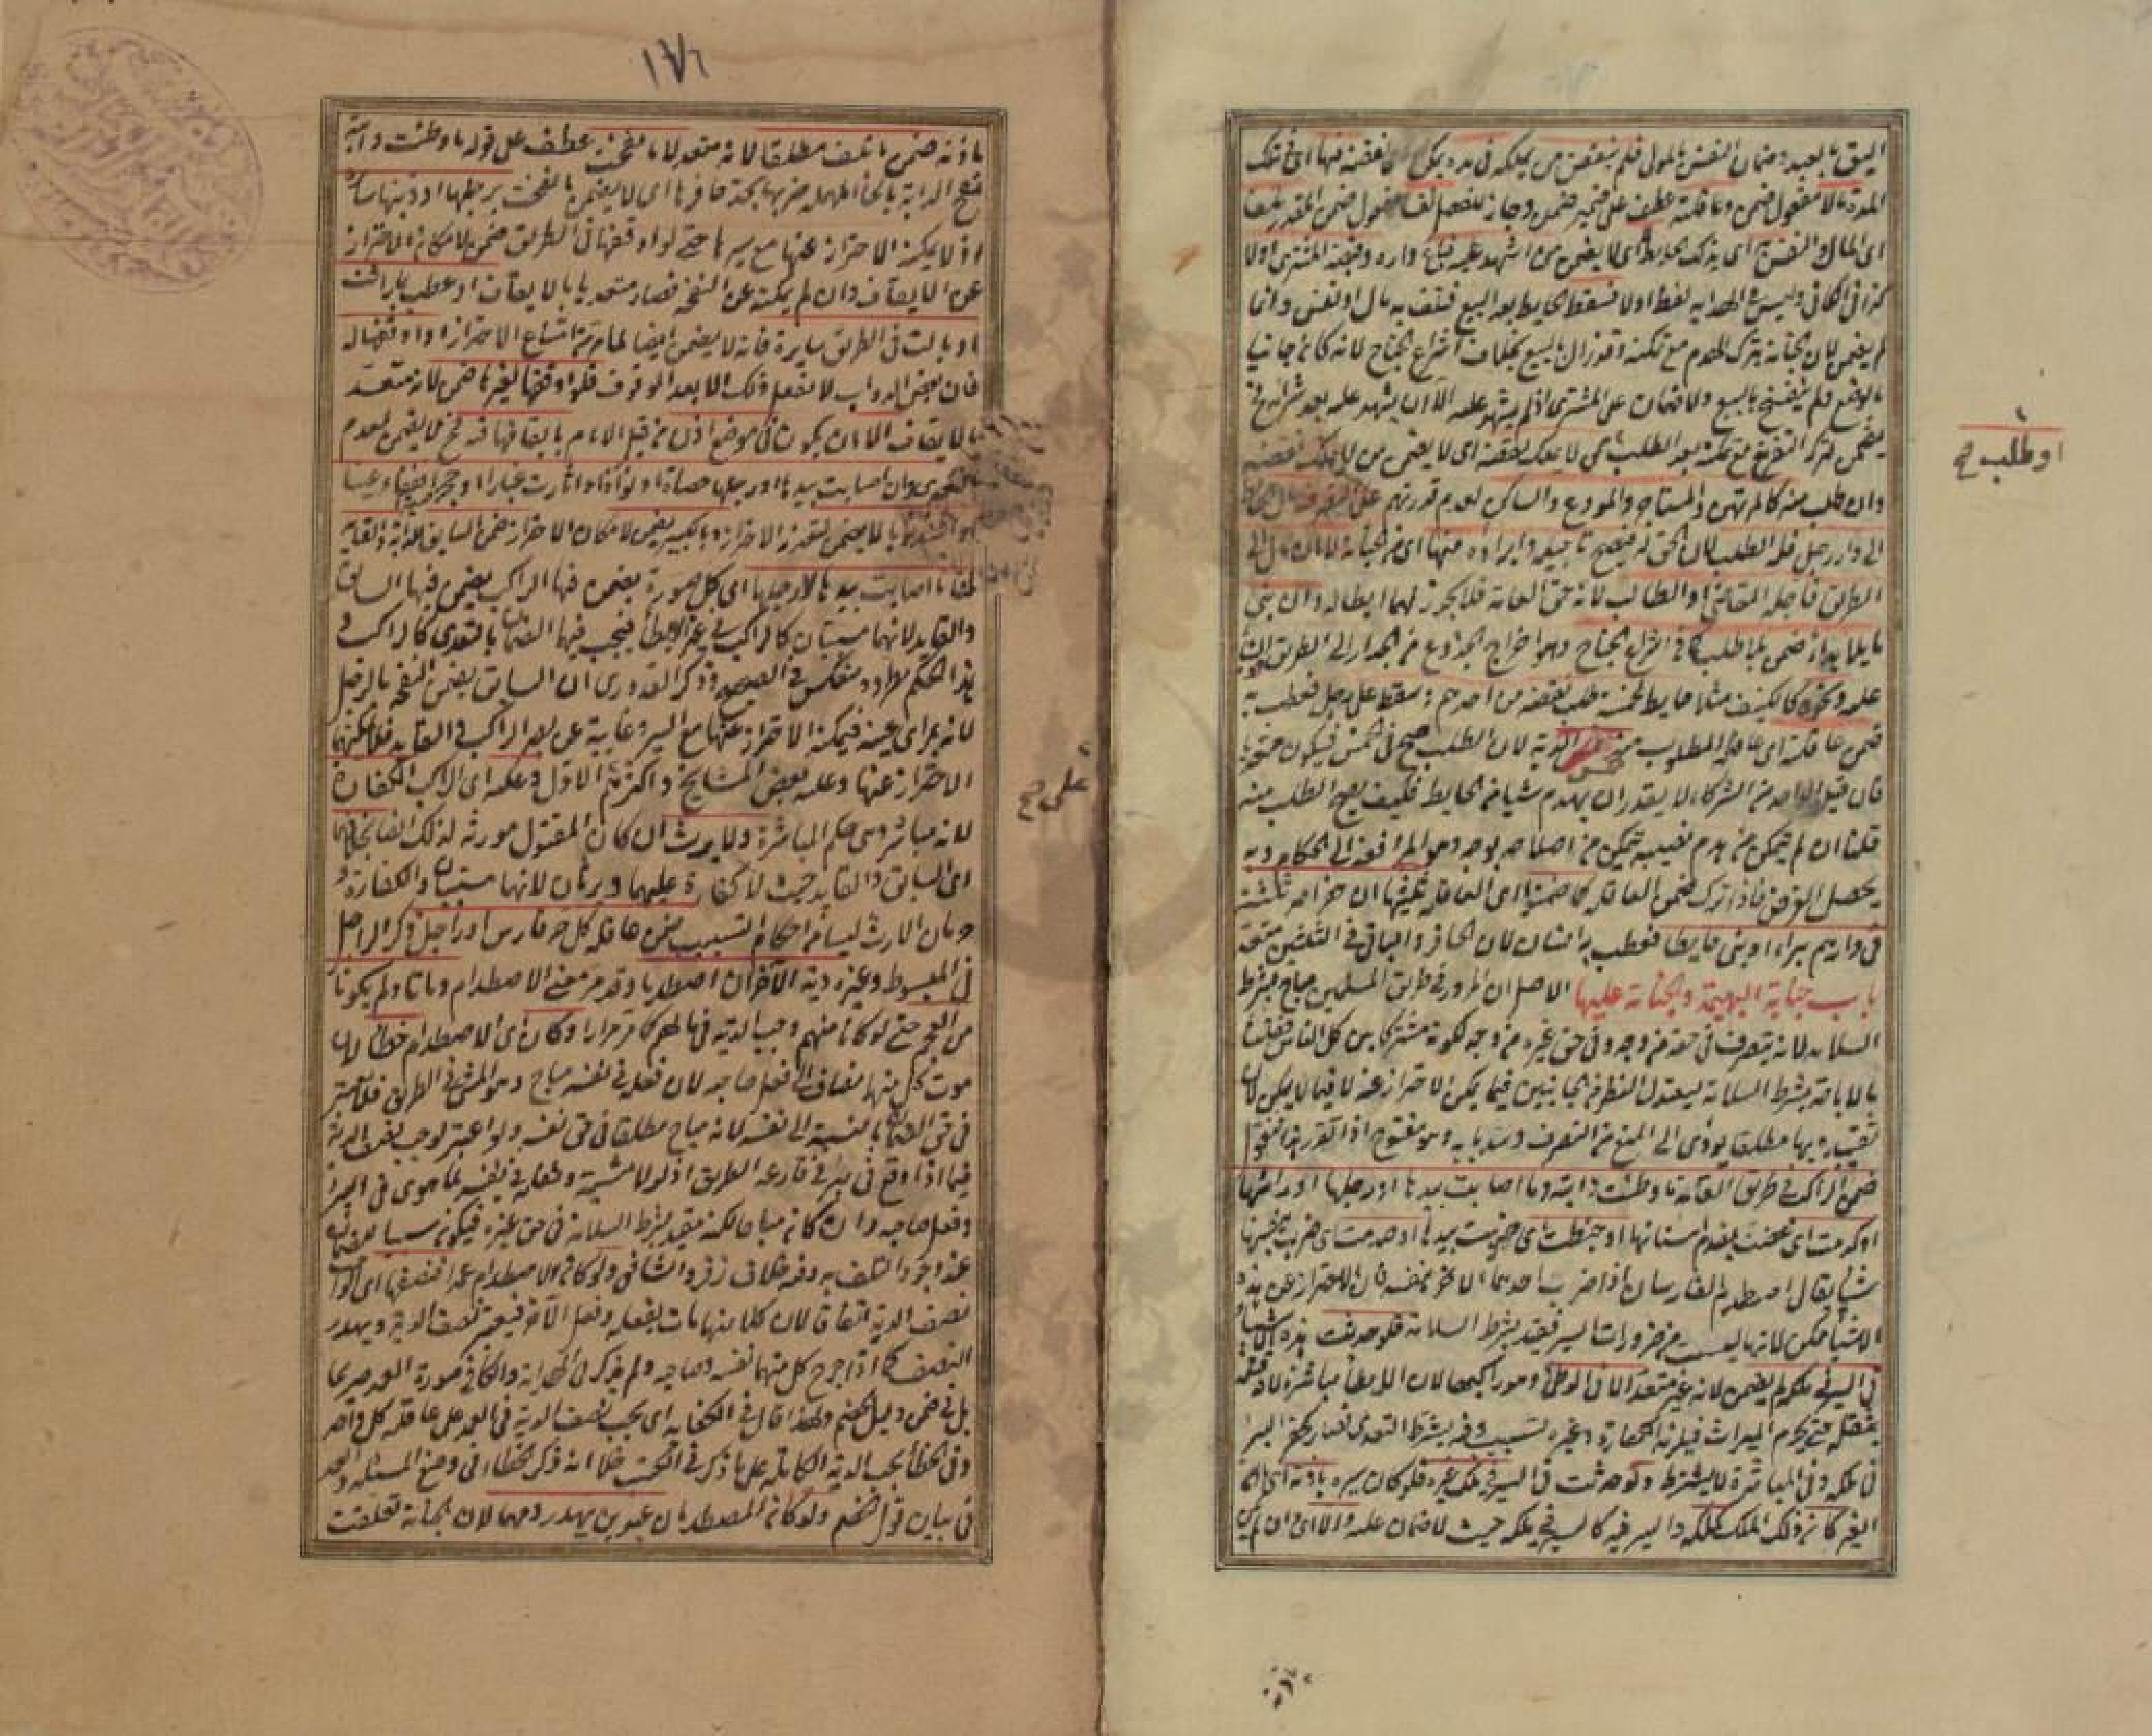 اليق بالعبد وضمان النفس بالمولى فلم ينقض من يملكه في مدة يمكن نقضه فيها اى في تلك
المدة مالا مفعول ضمن وعاقلته عطف على ضمير ضمن وجاز للفصل نفسا مفعول ضمن المقدر
اى المال والنفس اى بذلك الحايط اى لا يضمن من اشهد عليه فباع داره وقبضه المشترى اولا
كذا فى الكافى وليس فى الهداية لفظ اولا فسقط الحايط بعد البيع فتلف به مال او نفس وانما
لم يضمن لان الجناية بترك الهدم مع تمكنه وقد زال بالبيع بخلاف اشراع الجناح لانه كان جانيا
بالوضع فلم ينفسخ بالبيع ولا ضمان على المشترى اذ لم يشهد عليه الا ان يشهد عليه بعد شرائه
فيضمن لتركه التفريغ مع تمكنه بعد الطلب لا يملك نقضه اى لا يضمن من لا يملك نقضه
وان طلب منه كالمرتهن والمستاجر والمودع والساكن لعدم قدرتهم على التصرف
الى دار رجل فله الطلب لان الحق له فيصح تاجيله وابراؤه منها اى من الجناية لا ان مال الى
الطريق فاجله القاضى او الطالب لانه حق العامة فلا يجوز لهما ابطاله وان بنى
مايلا ابتداء ضمن بلا طلب كما فى اشراع الجناح وهو اخراج الجذوع من الجدار الى الطريق
عليه ونحوه كالكنيف مثلا حايط لخمسة طلب نقضه من احدهم وسقط على رجل فعطب به
ضمن عاقلته اى عاقلة المطلوب منه خمس الدية لان الطلب صح فى الخمس فيكون متعديا
فان قيل الواحد من الشركاء لا يقدر ان يهدم شيا من الحايط فكيف يصح الطلب منه
قلنا ان لم يتمكن من هدم نصيبه يتمكن من اصلاحه بوجه وهو المرافعة الى الحكام وبه
يحصل الغرض فاذا ترك ضمن العاقلة كما ضمنوا اى العاقلة ثلثيها ان حفر احد ثلثة
فى دارهم بيرا او بنى حايطا فعطب به انسان لان الحافر والبانى فى الثلثين متعد
باب جناية البهيمة والجناية عليها الاصل ان المرور فى طريق المسلمين مباح بشرط
السلامة لانه يتصرف فى حقه من وجه وفى حق غيره من وجه لكونه مشتركا بين كل الناس فقلنا
بالاباحة بشرط السلامة ليعتدل النظر من الجانبين فيما يمكن الاحتراز عنه لا فيما لا يمكن لان
تقييده بها مطلقا يودى الى المنع من التصرف وسد بابه وهو مفتوح اذا تقرر هذا فنقول
ضمن الراكب فى طريق العامة ما وطئت دابته وما اصابت بيدها او رجلها او راسها
او كدمت اى عضت بمقدم اسنانها او خبطت اى ضربت بيدها او صدمت اى ضربت بنفسها
شيا يقال اصطدم الفارسان اذا ضرب احدهما الاخر بنفسه فان الاحتراز عن هذه
الاشيا ممكن لانها ليست من ضرورات السير فيقيد بشرط السلامة فلو حدثت هذه الاشيا
فى السير فى ملكه لم يضمن لانه غير متعد الا فى الوطئ وهو راكبها لان الايطا مباشرة
بقتله حتى يحرم الميراث فيلزمه الكفارة وغيره تسبيب وفيه يشترط التعدى
فى ملكه وفى المباشرة لا يشترط ولو حدثت فى السير فى ملك غيره فلو كان سيره باذنه
الغير كان ذلك الملك كملكه والسير فيه كالسير فى ملكه حيث لا ضمان عليه والا اى وان لم يكن
او طلب صح
١٧٦
باذنه ضمن ما تلف مطلقا لانه متعد لا ما نفحت عطف على قوله ما وطئت دابته
نفح الدابة بالحاء المهملة ضربها بحد حافرها اى لا يضمن ما نفحت برجلها او ذنبها سائرة
اذ لا يمكنه الاحتراز عنها مع سيرها حتى لو اوقفها فى الطريق ضمن لامكان الاحتراز
عن الايقاف وان لم يمكنه عن النفحة فصار متعديا بالايقاف او عطب بما راثت
او بالت فى الطريق سايرة فانه لا يضمن ايضا لما مر من امتناع الاحتراز او اوقفها له
فان بعض الدواب لا تفعل ذلك الا بعد الوقوف فلو اوقفها لغيره ضمن لانه متعد
بالايقاف الا ان يكون فى موضع اذن من قبل الامام بايقافها فحينئذ لا يضمن لعدم
التعدى وان اصابت بيدها او رجلها حصاة او نواة او اثارت غبارا او حجرا صغيرا
لا يضمن لتعذر الاحتراز وبالكبير يضمن لامكان الاحتراز ضمن السايق لدابة والقايد
لها ما اصابت بيدها لا رجلها اى كل صورة يضمن فيها الراكب يضمن فيها السايق
والقايد لانهما مسببان كالراكب فى غير الايطا فيجب فيهما الضمان بالتعدى كالراكب
هذا الحكم مطرد ومنعكس فى الصحيح وذكر القدورى ان السايق يضمن النفحة بالرجل
لانه بمراى عينه فيمكنه الاحتراز عنها مع السير وغايبة عن بصر الراكب والقايد فلا يمكنهما
الاحتراز عنها وعليه بعض المشايخ واكثرهم الاول وعليه اى الراكب الكفارة
لانه مباشر وهى حكم المباشرة ولا يرث ان كان المقتول مورثه لذلك ايضا بخلافهما
اى السايق والقايد حيث لا كفارة عليهما ويرثان لانهما مسببان والكفارة
وحرمان الارث ليسا من احكام التسبيب ضمن عاقلة كل حر فارس او راجل ذكر الراجل
فى المبسوط وغيره دية الآخر ان اصطدما وقد مر معنى الاصطدام وماتا ولم يكونا
من العجم حتى لو كانا منهم وجب الدية فى مالهم كما مر مرارا وكان اى الاصطدام خطأ لان
موت كل منهما مضاف الى فعل صاحبه لان فعله فى نفسه مباح وهو المشى فى الطريق فلا يعتبر
فى حق الضمان بالنسبة الى نفسه لانه مباح مطلقا فى حق نفسه ولو اعتبر لوجب نصف الدية
فيما اذا وقع فى بير فى قارعة الطريق اذ لولا مشيه وثقله فى نفسه لما هوى فى البير
وفعل صاحبه وان كان مباحا لكنه مقيد بشرط السلامة فى حق غيره فيكون سببا للضمان
عند وجود التلف به وفيه خلاف زفر والشافعى ولو كان الاصطدام عمدا فنصفها اى الواجب
نصف الدية اتفاقا لان كلا منهما مات بفعله وفعل الآخر فيعتبر نصف الدية ويهدر
النصف كما اذا جرح كل منهما نفسه وصاحبه ولم يذكر فى الهداية والكافى صورة العمد صريحا
بل فى ضمن دليل الخصم ولهذا قال فى الكفاية اى يجب نصف الدية فى العمد على عاقلة كل واحد
وفى الخطأ يجب الدية الكاملة على ما ذكر فى الكتاب
فى بيان قول الخصم ولو كان المصطدمان عبدين يهدر دمهما لان الجناية تعلقت
على صح